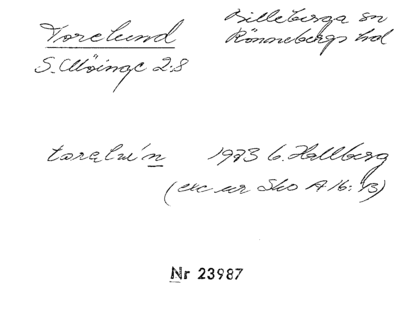 Torelund
Billeberga sn
Rönnebergs hd
S. Möinge 2:8
torǝlu´n 1973 G. Hallberg
(exc ur Sko A 16:13)
Nr 23987